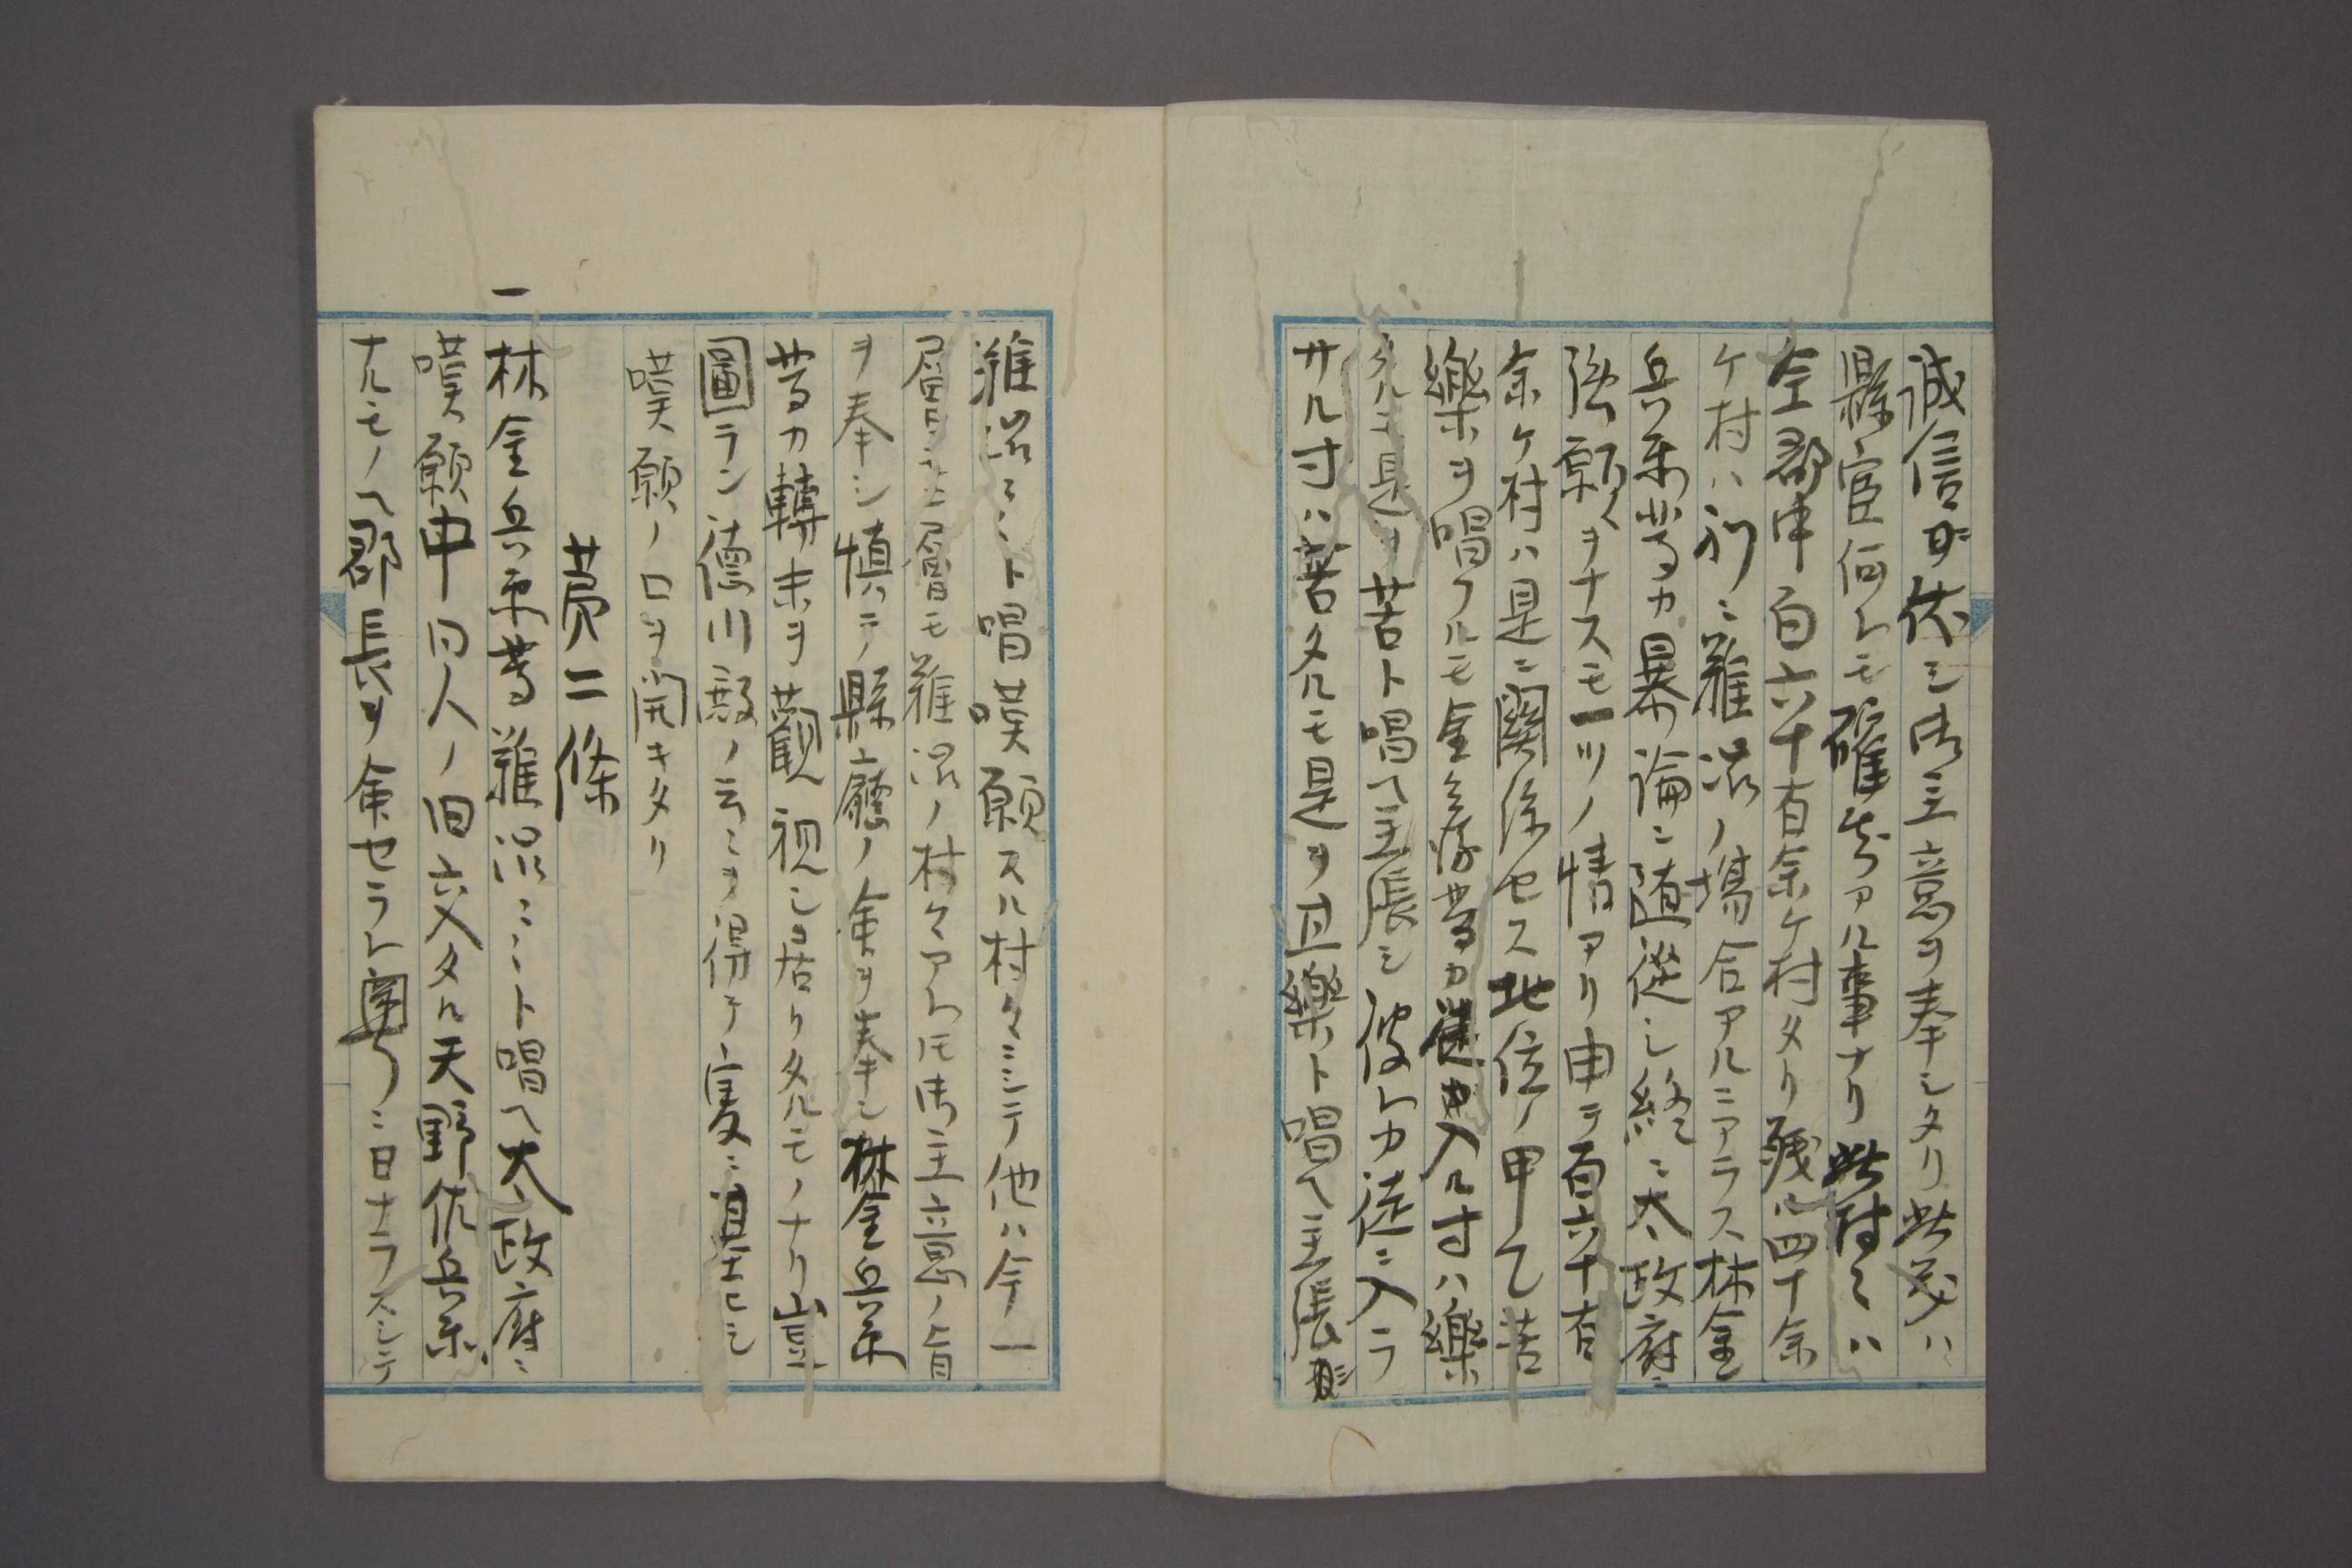 誠信ヨリ依シ御主意ヲ奉シタリ此前ハ
縣官何レモ確知アル事ナリ此村々ハ
全郡中百六十有余ケ村タリ残ル四十余
ケ村ハ別ニ難渋ノ場合アルニアラス林金
兵衛等カ暴論ニ随従シ終ニ太政府ニ
強願ヲナスモ一ツノ情アリ申テ百六十有
余ケ村ハ是ニ關係セス地位ノ甲乙苦
樂ヲ唱フルモ金兵衛等カ徒ニ入ル寸ハ樂
タルモ是ヲ苦ト唱ヘ主張シ彼レカ徒ニ入ラ
サル寸ハ苦タルモ是ヲ樂ト唱ヘ主張シ
難渋々々ト唱嘆願スル村々ミシテ他ハ今一
層上層モ難渋ノ村々アレトモ御主意ノ旨
ヲ奉シ慎ンテ縣廳ノ命ヲ奉シ林金兵衛
等カ轉末ヲ觀視シ居リタルモノナリ豈
圖ラン徳川殿ノ云々ヲ得テ爰ニ至ヒシ
嘆願ノ口ヲ開キタリ
第二條
一林金兵衛等難渋々々ト唱ヘ太政府ニ
嘆願中同人ノ旧友タル天野佐兵衛
ナルモノヘ郡長ヲ命セラレ間モナク日ナラスシテ